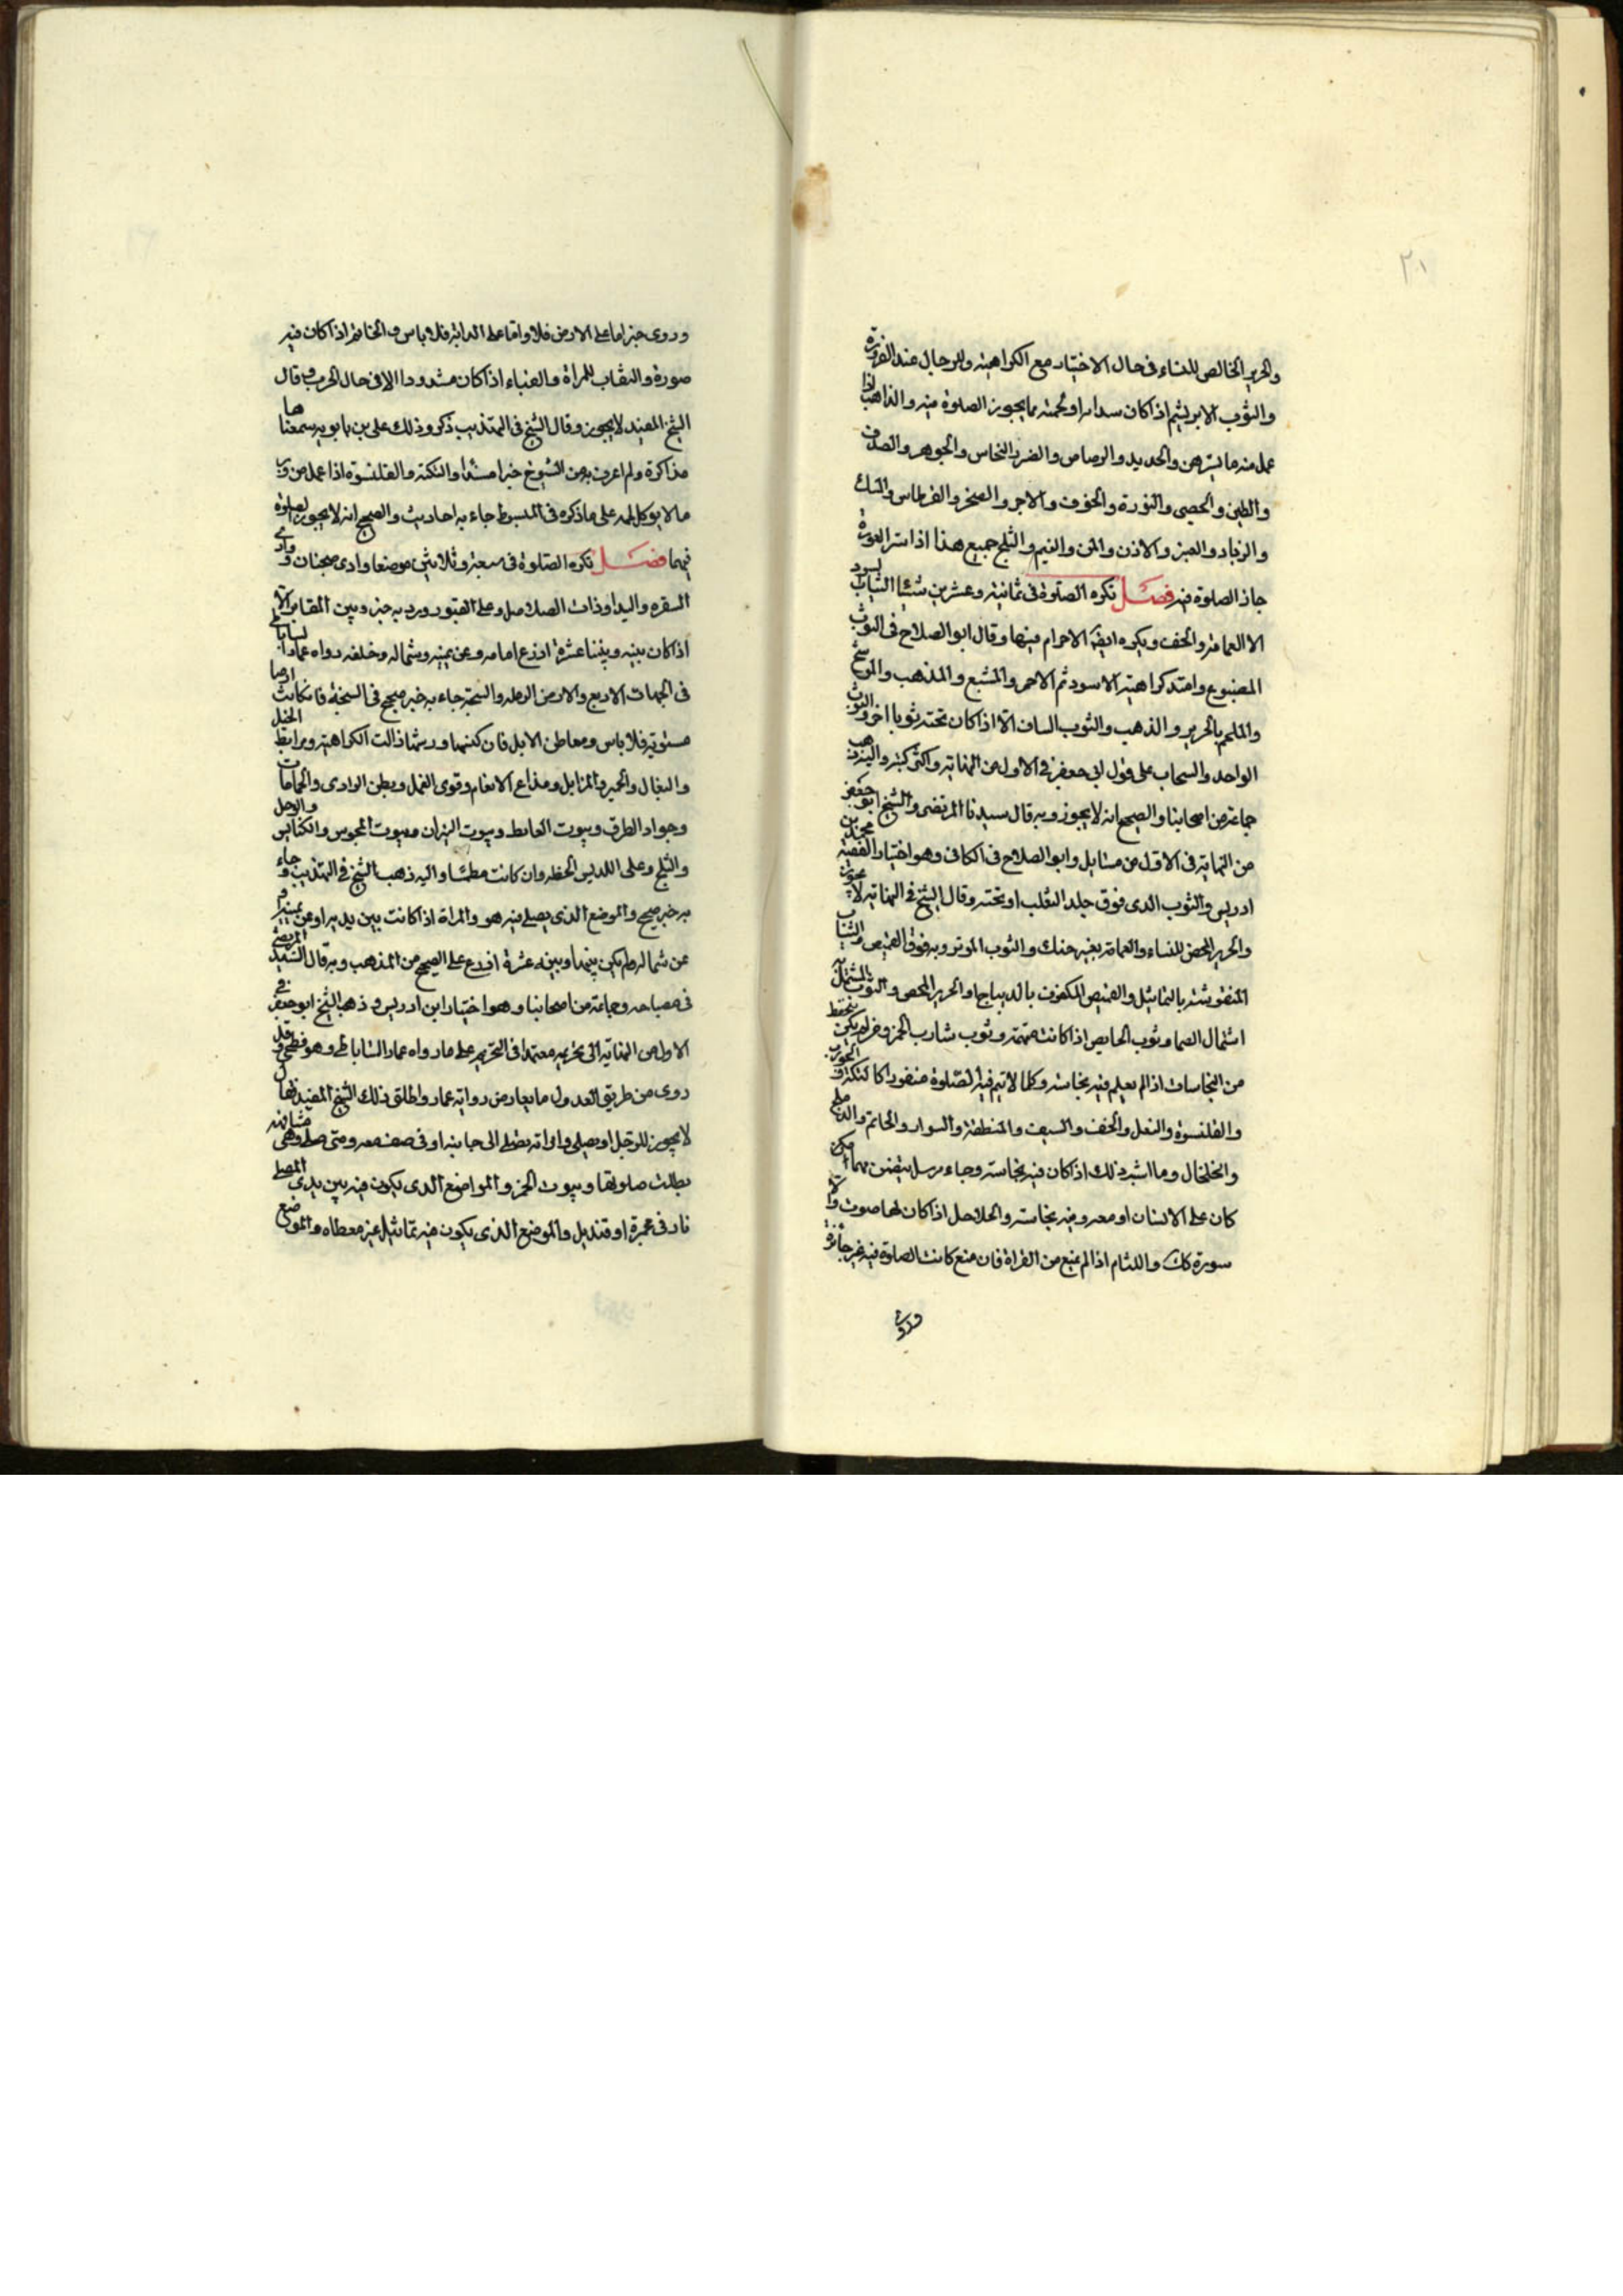 ٢١
والحرير الخالص للنساء فى حال الاختيار مع الكراهية وللرجال عند الضرورة
والثوب الابريشم اذا كان سداه او لحمته مما يجوز الصلوة فيه والذاهب اذا
عمل منه ما يسترهن والحديد والرصاص والصفر والنحاس والجوهر والصدف
والطين والحصى والنورة والخزف والاجر والصخر والقرطاس والمسك
والزباد والعنبر والاذن والمن والغيم والثلج جميع هذا اذا ستر العورة
جاز الصلوة فيه فصل تكره الصلوة فى ثمانية وعشرين شيئا الثياب السود
الا العمامة والخف ويكره ايضا الاحرام فيها وقال ابو الصلاح فى الثوب
المصبوغ واشد كراهية الاسود ثم الاحمر والمشبع والمذهب والموشح
والملحم بالحرير والذهب والثوب الساف الا اذا كان تحته ثوبا اخر والثوب
الواحد والسحاب على قول ابى جعفر فى الاول من النهاية واكثر كتبه واليه ذهب
جماعة من اصحابنا والصحيح انه لا يجوز وبه قال سيدنا المرتضى والشيخ ابو جعفر
من النهاية فى الاول من مسايل وابو الصلاح فى الكافى وهو اختيار الفقيه محمد بن
ادريس والثوب الذى فوق جلد الثعلب او تحته وقال الشيخ فى النهاية لا يجوز
والحرير المحض للنساء والعمامة بغير حنك والثوب الموتزر به فوق القميص والثياب
المنقوشة بالتماثيل والقميص المكفوف بالديباج او الحرير المحض والثوب المشتمل به
اشتمال الصما وثوب الحايض اذا كانت متهمة وثوب شارب الخمر وغير لم يكن يتحفظ
من النجاسات اذا لم يعلم فيه نجاسة وكلما لا تتم فيه الصلوة منفردا كالتكة والجورب
والقلنسوة والنعل والخف والسيف والمنطقة والسوار والخاتم والدملج
والخلخال وما اشبه ذلك اذا كان فيه نجاسة وجاء مرسل يتضمن مهما امكن
كان على الانسان او معه وفيه نجاسة والخلاخل اذا كان لها صوت والا
سورة كك واللثام اذا لم يمنع من القراة فان منع كانت الصلوة فيه غير جائزة
وروى
وروى خبر اما على الارض فلا واما على الدابة فلا باس والخاتم اذا كان فيه
صورة والنقاب للمراة والقباء اذا كان مشدودا الا فى حال الحرب وقال
الشيخ المفيد لا يجوز وقال الشيخ فى التهذيب ذكر ذلك على بن بابويه سمعناها
مذاكرة ولم اعرف به من الشيوخ خبرا مسندا والتكة والقلنسوة اذا عمل من وبر
ما لا يوكل لحمه على ما ذكره فى المبسوط جاء به احاديث والصحيح انه لا يجوز الصلوة
فيهما فصل تكره الصلوة فى سبعة وثلاثين موضعا وادى ضجنان ووادى
الشقرة والبيدا وذات الصلاصل وعلى القبور ورد به خبر وبين المقابر الا
اذا كان بينه وبينها عشرة اذرع امامه وعن يمينه وشماله وخلفه رواه عمار الساباطى
فى الجهات الاربع والارض الرمله والسبخة جاء به خبر صحيح فى السبخة فان كانت ارضا
مستوية فلا باس ومعاطن الابل فان كنسها ورشها زالت الكراهية ومرابط الخيل
والبغال والحمير والمزابل ومذابح الانعام وقرى النمل وبطن الوادى والحمامات
وجواد الطرق وبيوت الغايط وبيوت النيران وبيوت المجوس والكنايس والوحل
والثلج وعلى الكدس الحنطه وان كانت مطينا واليه ذهب الشيخ فى التهذيب وجاء
به خبر صحيح والموضع الذى يصلى فيه هو والمراة اذا كانت بين يديه او عن يمينه او
عن شماله ولم يكن بينهما وبينه عشرة اذرع على الصحيح من المذهب وبه قال السيد المرتضى
فى مصباحه وجماعة من اصحابنا وهو اختيار ابن ادريس وذهب الشيخ ابو جعفر فى
الاول من النهاية الى تحريمه معتمدا فى التحريم على ما رواه عمار الساباطى وهو فطحى وقد
روى من طريق العدول ما يعارض رواية عمار واطلق ذلك الشيخ المفيد فقال
لا يجوز للرجل ان يصلى وامراته تصلى الى جانبه او فى صف معه ومتى صلى وهى مشافنه
بطلت صلوتها وبيوت الخمر والمواضع الذى يكون فيه بين يدى المصلى
نار فى مجمرة او قنديل والموضع الذى يكون فيه تماثيل غير مغطاه والموضع